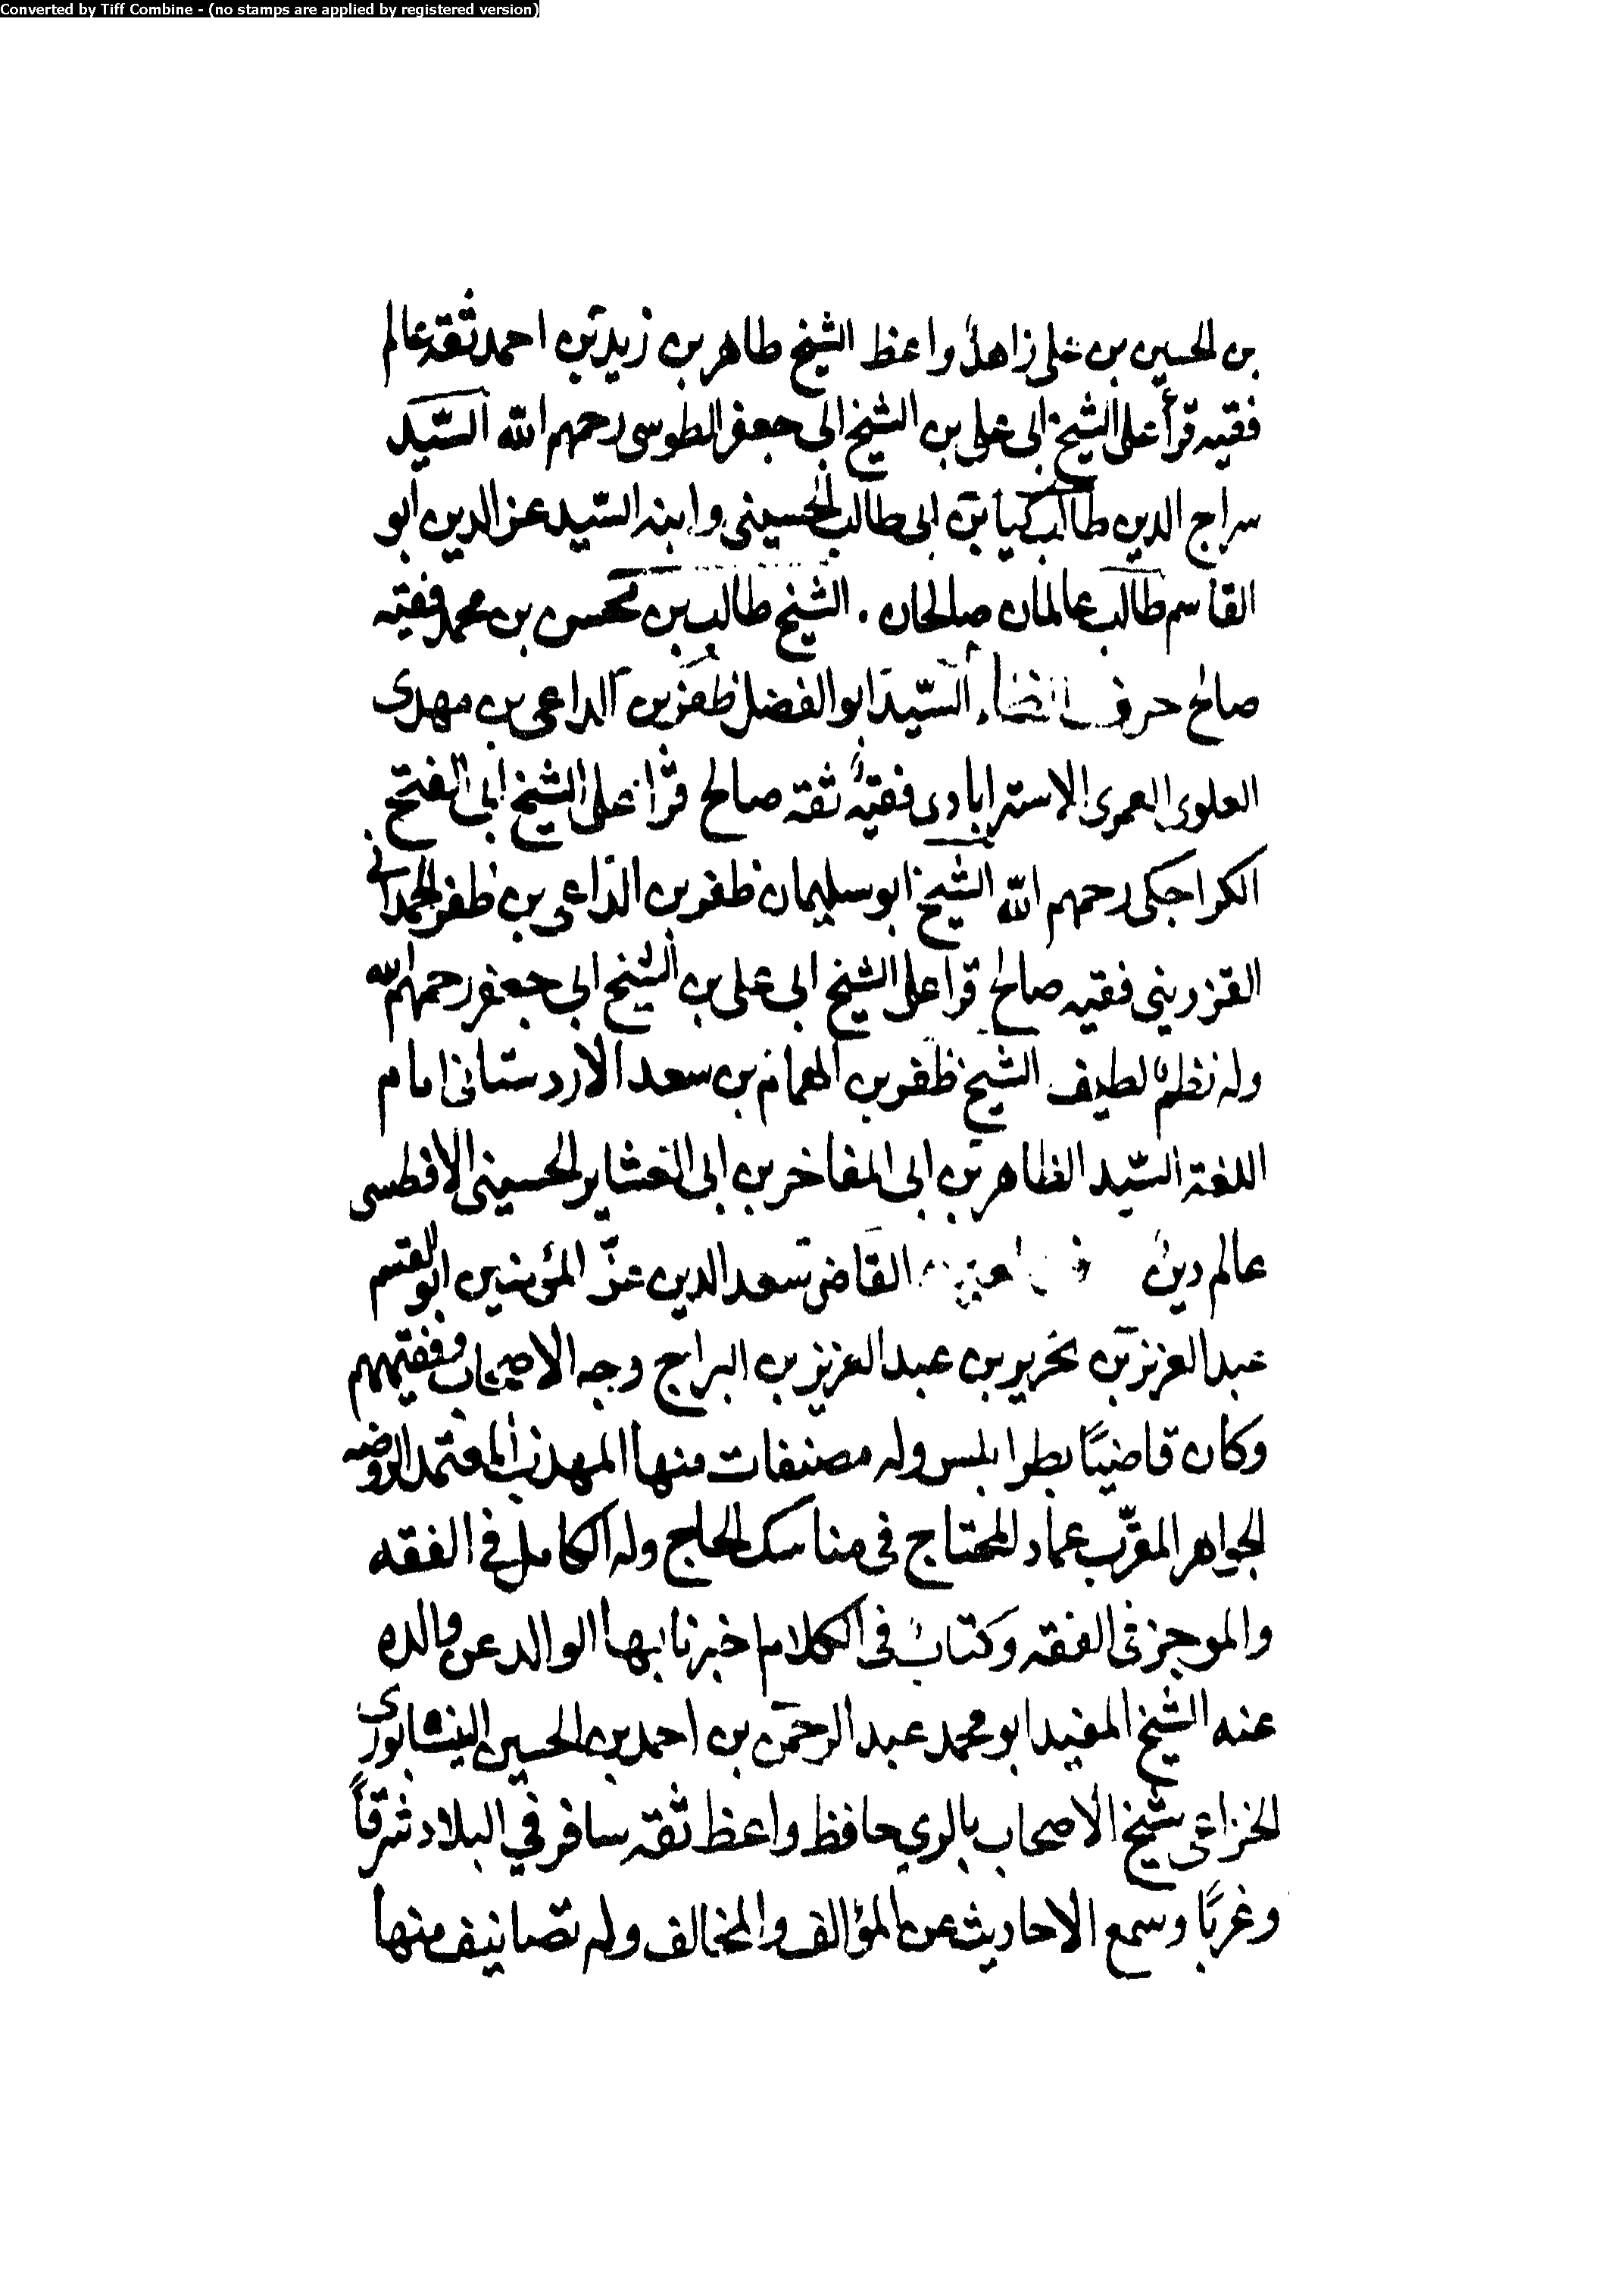 Converted by Tiff Combine - (no stamps are applied by registered version)
بن الحسين بن على زاهدٌ واعظ الشيخ طاهر بن زيد بن احمد ثقه عالم
فقيه قرأ على الشيخ ابى على بن الشيخ ابى جعفر الطوسى رحمهم الله السّيد
سراج الدين طالب كيا بن ابى طالب الحسينى وابنه السّيد عز الدين ابو
القاسم طالب عالمان صالحان . الشيخ طالب بن محسن بن محمد فقيه
صالح حرف الظاء السّيد ابو الفضل ظفر بن الداعى بن مهدى
العلوى العمرى الاسترابادى فقيهٌ ثقه صالح قرأ على الشيخ ابى الفتح
الكراجكى رحمهم الله الشيخ ابو سليمان ظفر بن الداعى بن ظفر الحمدانى
القزوينى فقيه صالح قرا على الشيخ ابى على بن الشيخ ابى جعفر رحمهم الله
وله نظمٌ لطيف الشيخ ظفر بن الهمام بن سعد الاردستانى امام
اللغة السّيد الظاهر بن ابى المفاخر بن ابى العشاير الحسينى الافطسى
عالم دينٌ القاضى سعد الدين عزّ المؤمنين ابو القسم
عبد العزيز بن نحرير بن عبد العزيز بن البراج وجه الاصحاب وفقيههم
وكان قاضيًا بطرابلس وله مصنفات منها المهذب المعتمد الروضه
الجواهر المقرّب عماد المحتاج فى مناسك الحاج وله الكامل فى الفقه
والموجز فى الفقه وكتابٌ فى الكلام اخبرنا بها الوالد عن والده
عنه الشيخ المفيد ابو محمد عبد الرحمن بن احمد بن الحسين النيشابورى
الخزاعى شيخ الاصحاب بالري حافظ واعظ ثقه سافر في البلاد شرقاً
وغربًا وسمع الاحاديث عن المؤالف والمخالف وله تصانيف منها